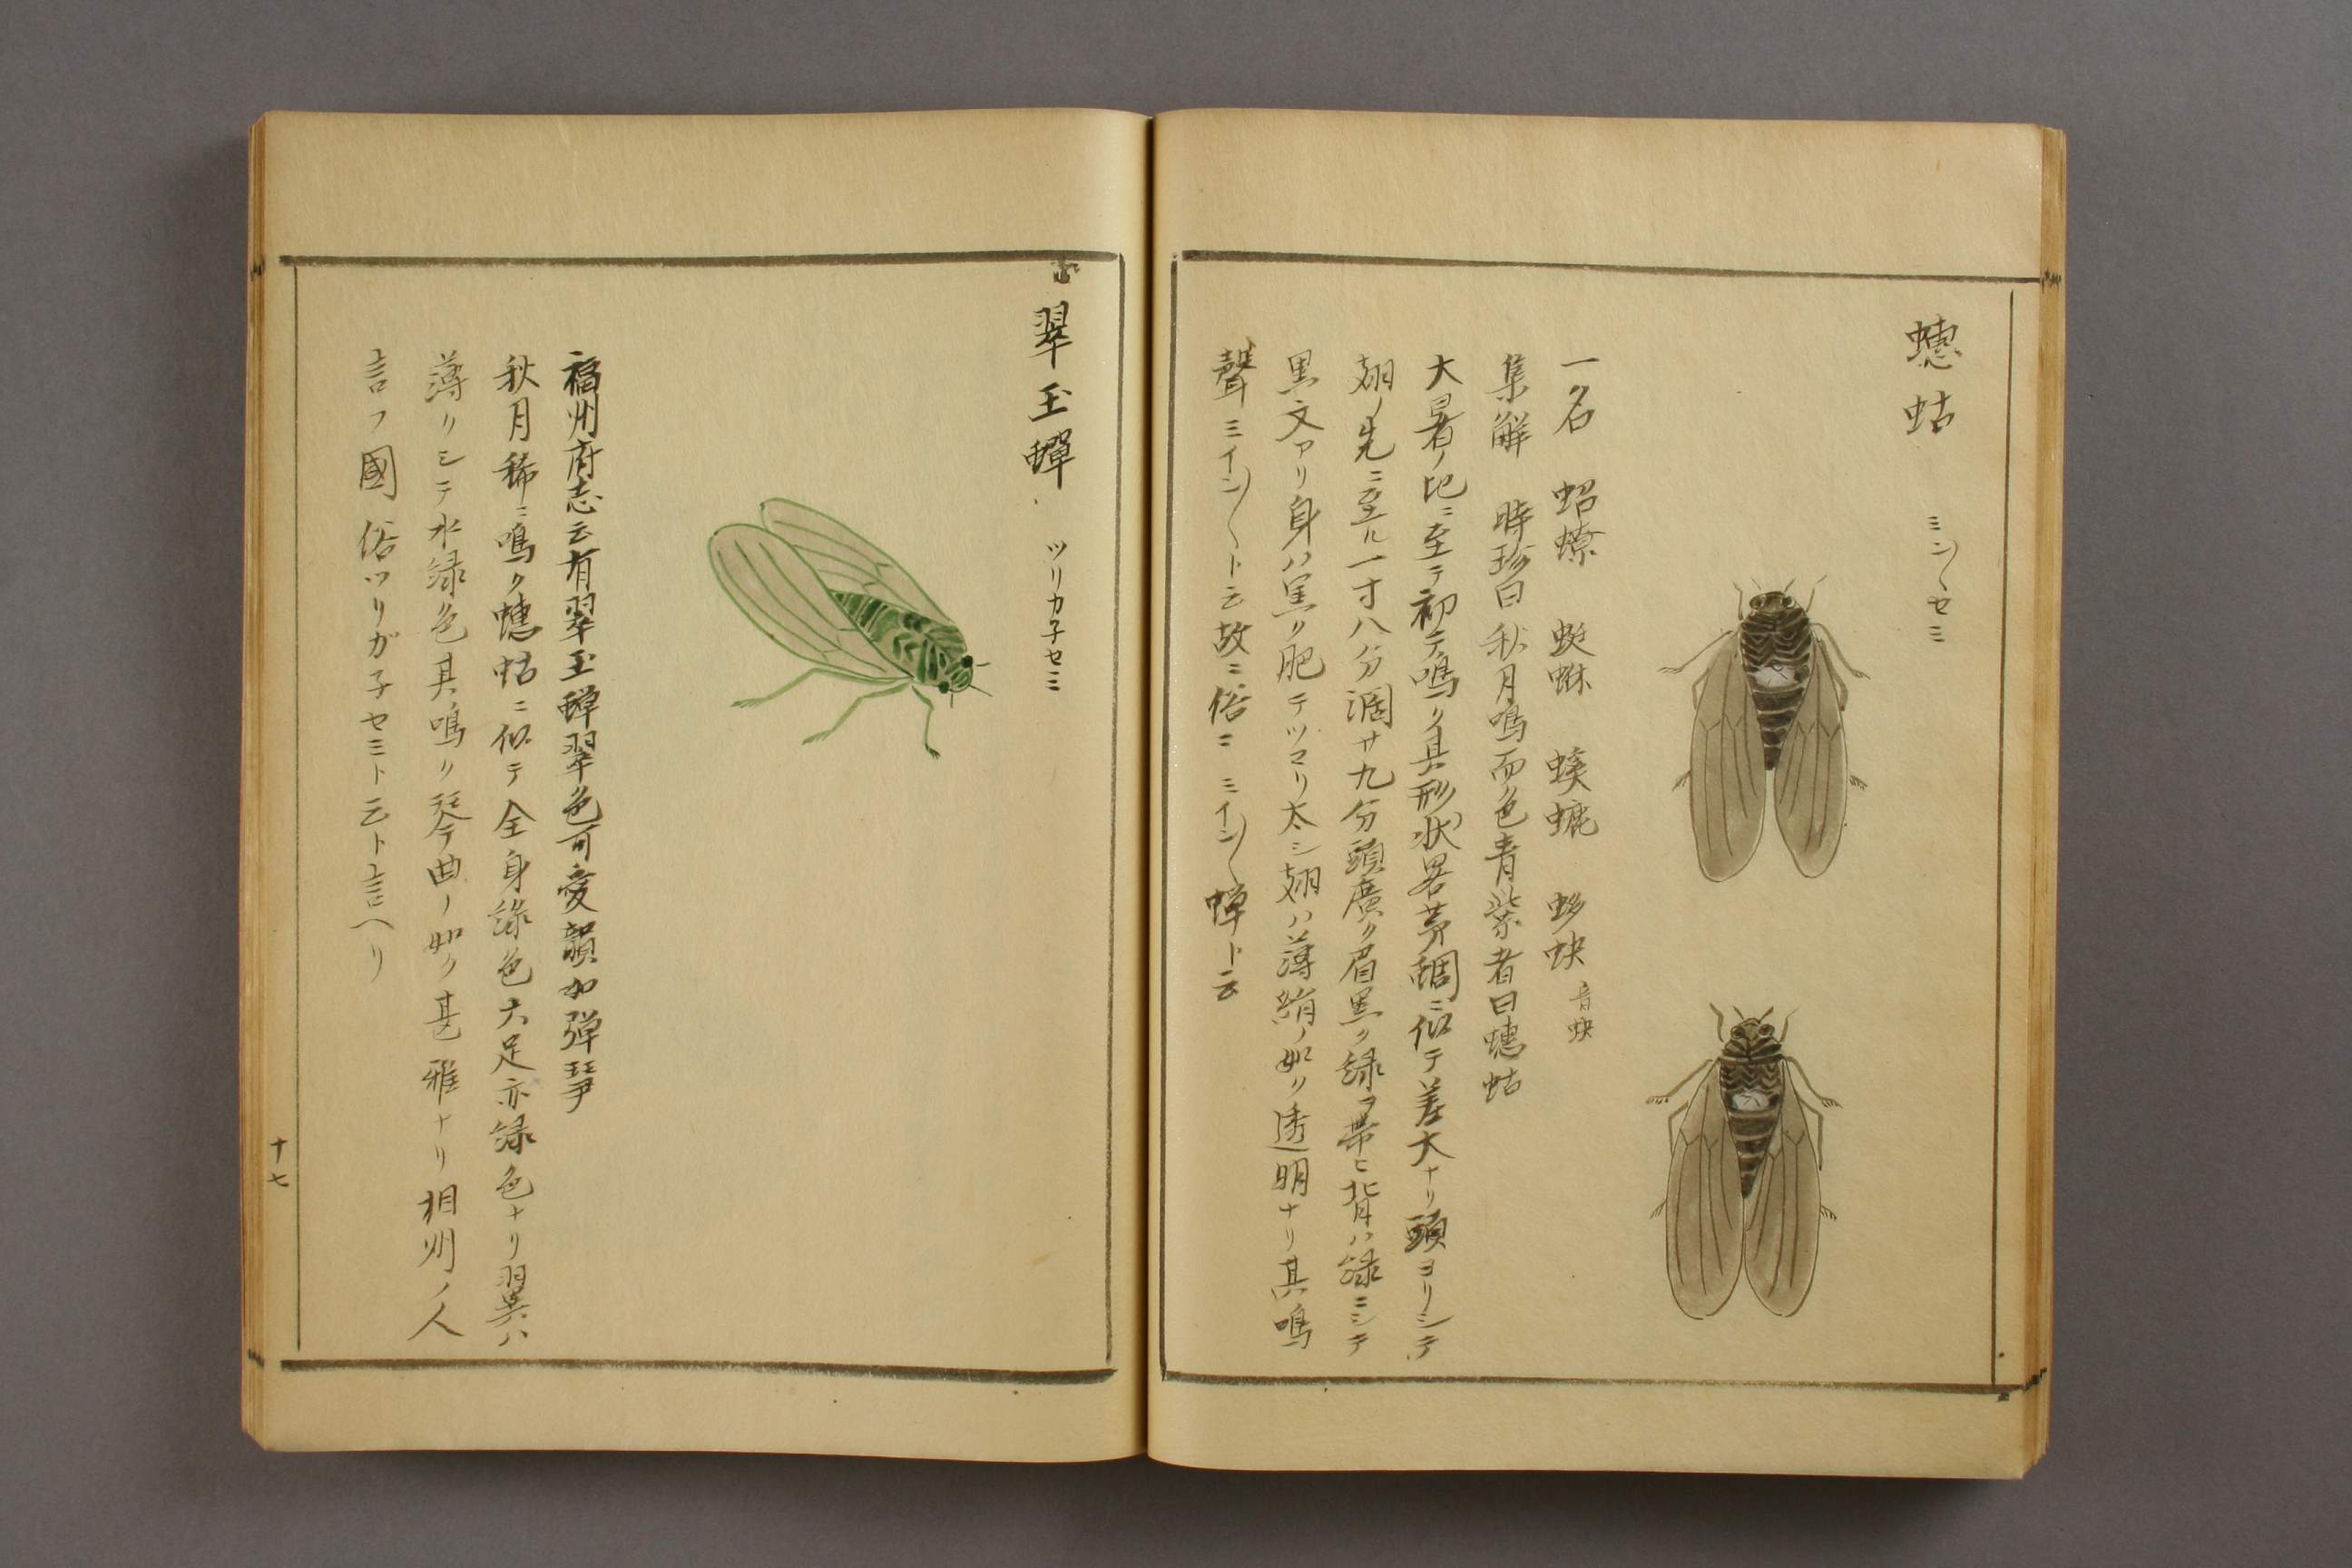 蟪蛄 ミン〱セミ
一名 蛁蟟 蜓蚞 螇螰 蛥蚗 音蚗
集觧 時珍曰秋月鳴而色青紫者曰蟪蛄
大暑ノ比ニ至テ初テ鳴ク其形状畧茅蜩ニ似テ差大ナリ頭ヨリシテ
翅ノ先ニ至ル一寸八分濶サ九分頭廣ク眉黒ク緑ヲ帯ヒ背ハ緑ニシテ
黒文アリ身ハ黒ク肥テツマリ太シ翅ハ薄絹ノ如ク透明ナリ其鳴
聲ミイン〱ト云故ニ俗ニミイン〱蝉ト云
翠玉蟬 ツリカ子セミ
福州府志云有翠玉蟬翠色可愛韻如弾琴
秋月稀ニ鳴ク蟪蛄ニ似テ全身緑色六足亦緑色ナリ翼ハ
薄クシテ水緑色其鳴ク琴曲ノ如ク甚雅ナリ相州ノ人
言フ國俗ツリガ子セミト云ト言ヘリ
十七